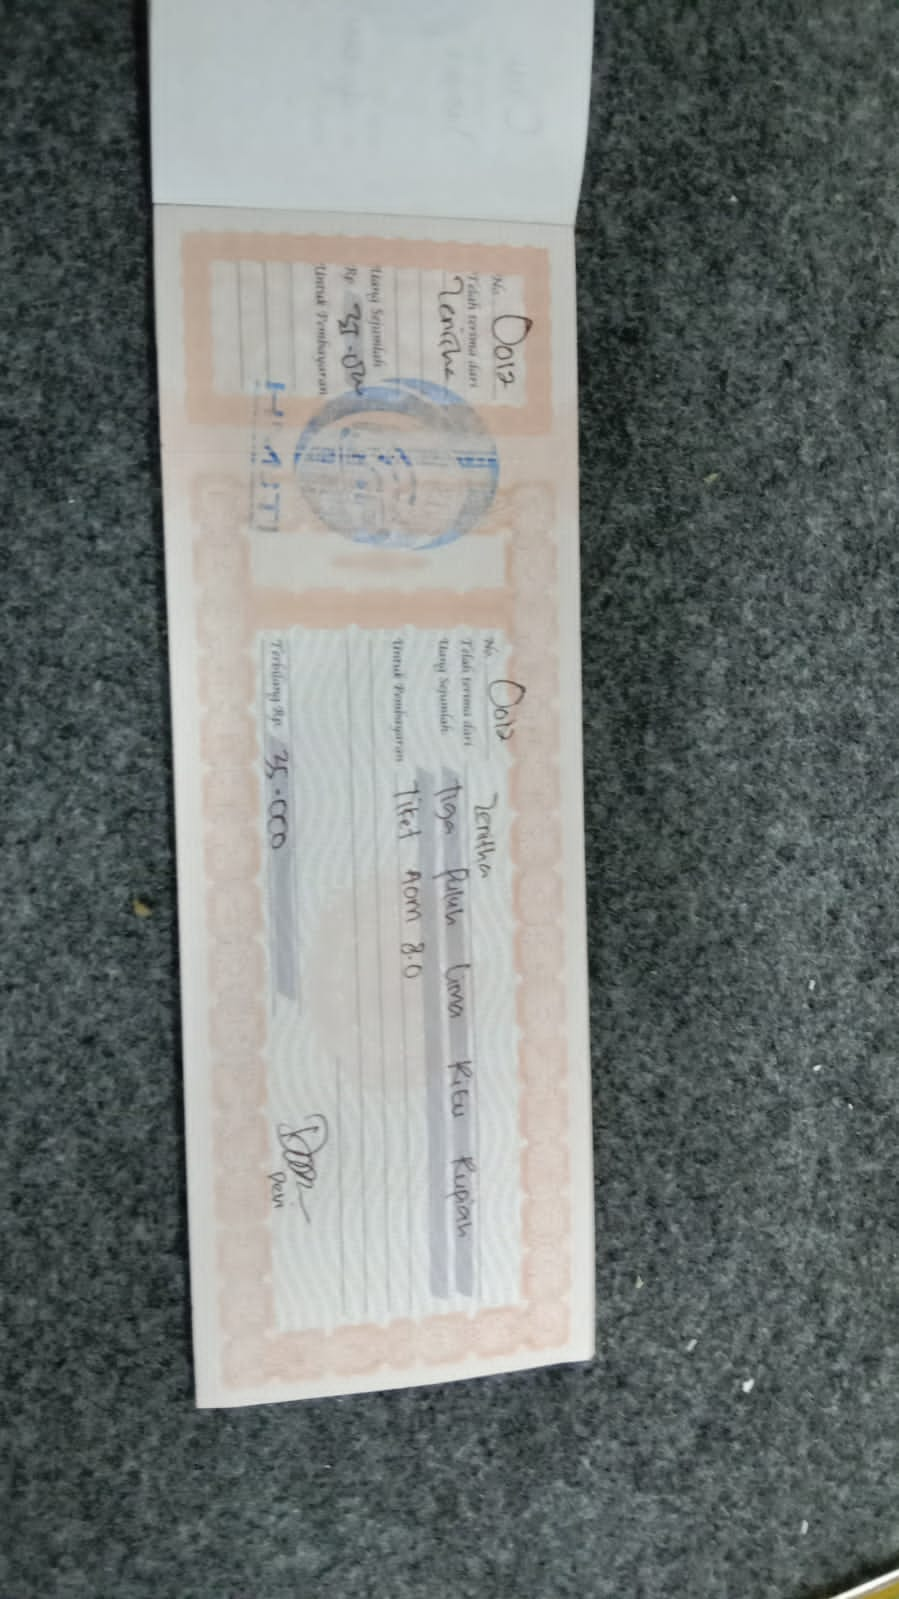 No. 0012
Telah terima dari
Zenitha
Uang Sejumlah
Rp 35.000
Untuk Pembayaran
No. 0012
Telah terima dari Zenitha
Uang Sejumlah Tiga Puluh Lima Ribu Rupiah
Untuk Pembayaran Tiket AOM 8.0
Terbilang Rp. 35.000
Devi